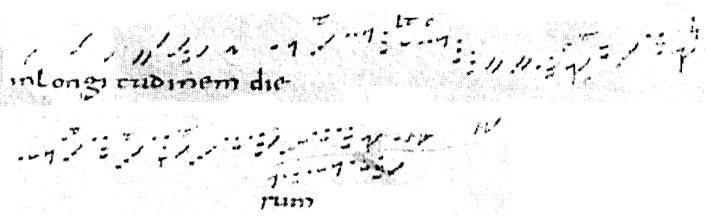 in longi tudinem die
rum